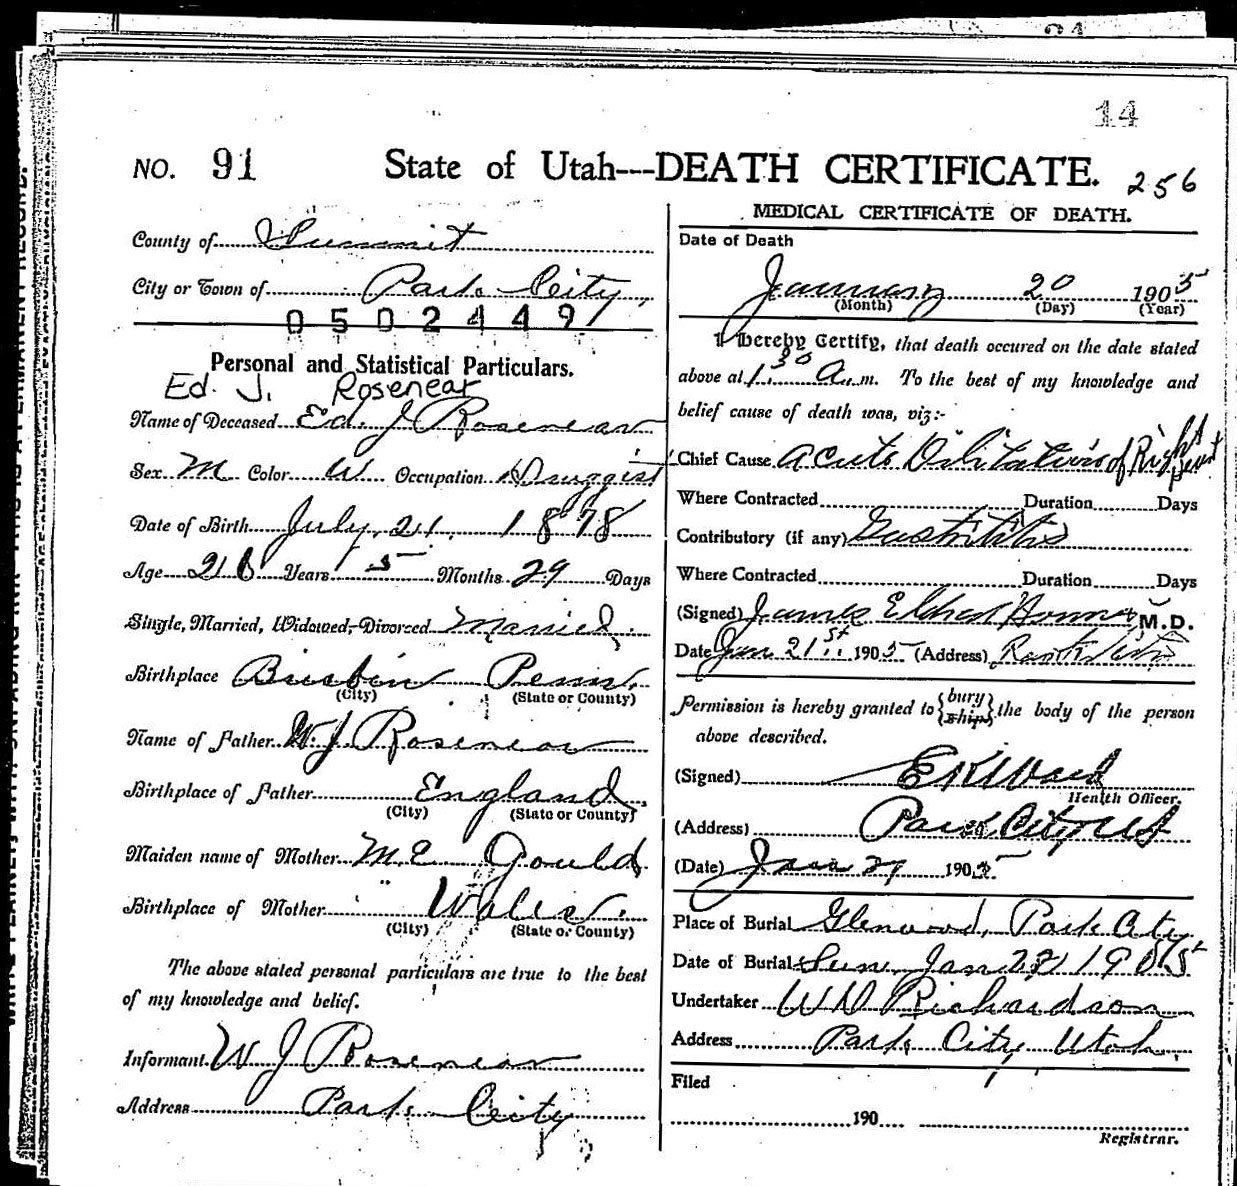 14
NO. 91 State of Utah---DEATH CERTIFICATE. 256
County of Summit
City or Town of Park City
0502449
Personal and Statistical Particulars.
Ed. J. Rosenear
Name of Deceased Ed. J Rosenear
Sex M Color W Occupation Druggist
Date of Birth July 21, 1878
Age 26 Years 5 Months 29 Days
Single, Married, Widowed, Divorced Married.
Birthplace Brisbin Penn.
(City) (State or County)
Name of Father W. J. Rosenear
Birthplace of Father England
(City) (State or County)
Maiden name of Mother M. E. Gould
Birthplace of Mother Wales.
(City) (State or County)
The above stated personal particulars are true to the best
of my knowledge and belief.
Informant W J Rosenear
Address Park City
MEDICAL CERTIFICATE OF DEATH.
Date of Death
January 20 1905
(Month) (Day) (Year)
I hereby Certify, that death occured on the date stated
above at 1.30 A.m. To the best of my knowledge and
belief cause of death was, viz:-
Chief Cause Acute Dilitation of Right Heart
Where Contracted Duration Days
Contributory (if any) Gastritis
Where Contracted Duration Days
(Signed) James M.D.
Date Jan 21st 1905 (Address) Park City
Permission is hereby granted to {bury ship} the body of the person
above described.
(Signed) E K Ward
Health Officer.
(Address) Park City Ut
(Date) Jan 21 1905
Place of Burial Glenwood, Park City
Date of Burial Sun, Jan 22 1905
Undertaker W D Richardson
Address Park City Utah.
Filed
190
Registrar.